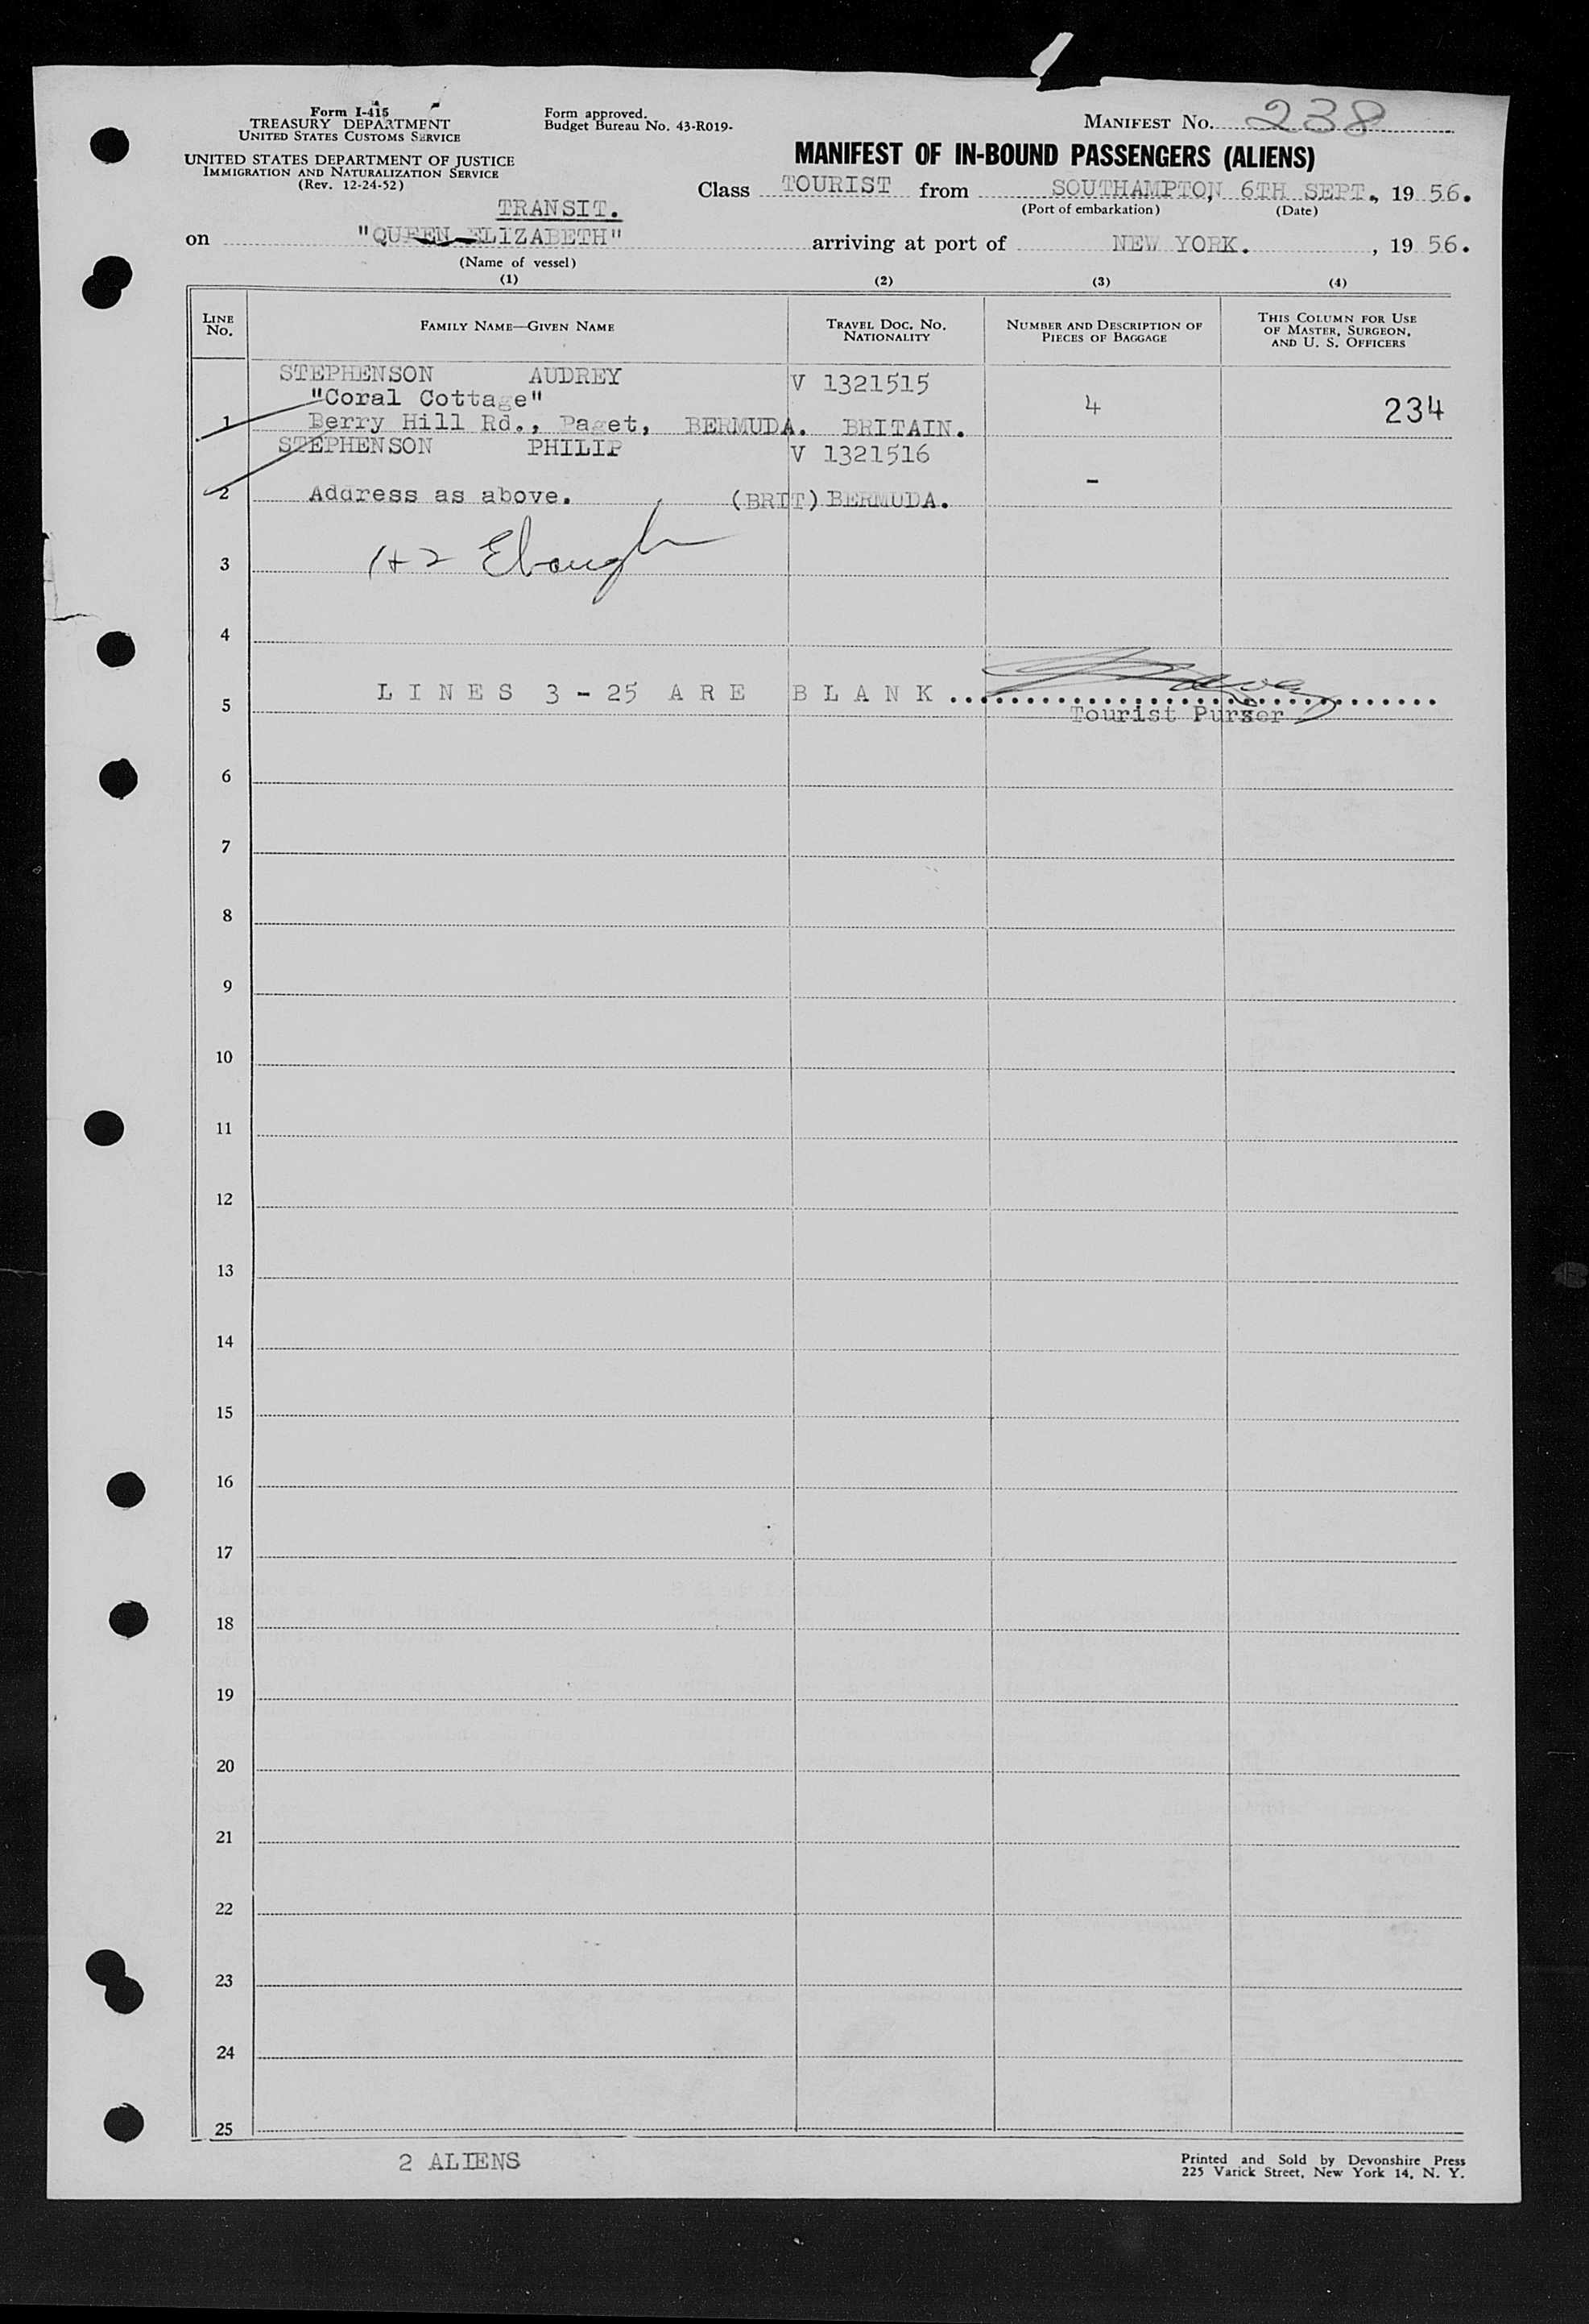 Form I-415
TREASURY DEPARTMENT
UNITED STATES CUSTOMS SERVICE
UNITED STATES DEPARTMENT OF JUSTICE
IMMIGRATION AND NATURALIZATION SERVICE
(Rev. 12-24-52)
Form approved.
Budget Bureau No. 43-R019-
MANIFEST No. 238
MANIFEST OF IN-BOUND PASSENGERS (ALIENS)
Class TOURIST from SOUTHAMPTON, 6TH SEPT., 19 56.
(Port of embarkation) (Date)
TRANSIT.
on "QUEEN ELIZABETH" arriving at port of NEW YORK. , 19 56.
(Name of vessel)
(1) (2) (3) (4)
LINE No. FAMILY NAME—GIVEN NAME TRAVEL DOC. No. NATIONALITY NUMBER AND DESCRIPTION OF PIECES OF BAGGAGE THIS COLUMN FOR USE OF MASTER, SURGEON, AND U. S. OFFICERS
STEPHENSON AUDREY V 1321515
"Coral Cottage" 4 234
1 Berry Hill Rd., Paget, BERMUDA. BRITAIN.
STEPHENSON PHILIP V 1321516
2 Address as above. (BRIT) BERMUDA. -
3 1+2 Ebaugh
4
5 LINES 3-25 ARE BLANK
Tourist Purser
6
7
8
9
10
11
12
13
14
15
16
17
18
19
20
21
22
23
24
25
2 ALIENS
Printed and Sold by Devonshire Press
225 Varick Street, New York 14, N. Y.